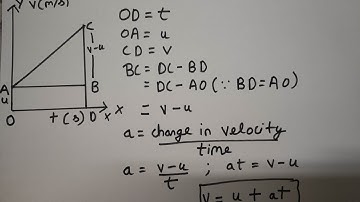 Y V(m/s)
C
v-u
A
B
u
O
t(s) D x x
OD = t
OA = u
CD = V
BC = DC - BD
= DC - AO (∵ BD = AO)
= v - u
a = change in velocity
time
a = v-u / t ; at = v-u
v = u + at